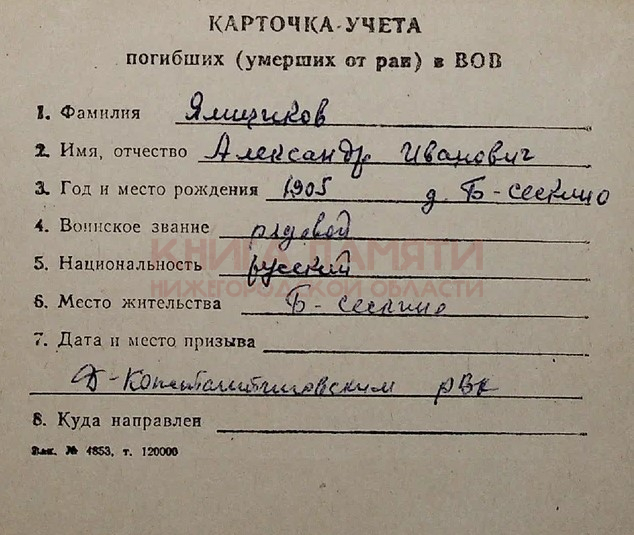 КАРТОЧКА УЧЕТА
погибших (умерших от ран) в ВОВ
1. Фамилия Ямщиков
2. Имя, отчество Александр Иванович
3. Год и место рождения 1905 д. Б-Сескино
4. Воинское звание рядовой
КНИГА ПАМЯТИ
5. Национальность русский
НИЖЕГОРОДСКОЙ ОБЛАСТИ
6. Место жительства Б-Сескино
7. Дата и место призыва
Д-Константиновским РВК
8. Куда направлен
Зак. № 4853, т. 120000